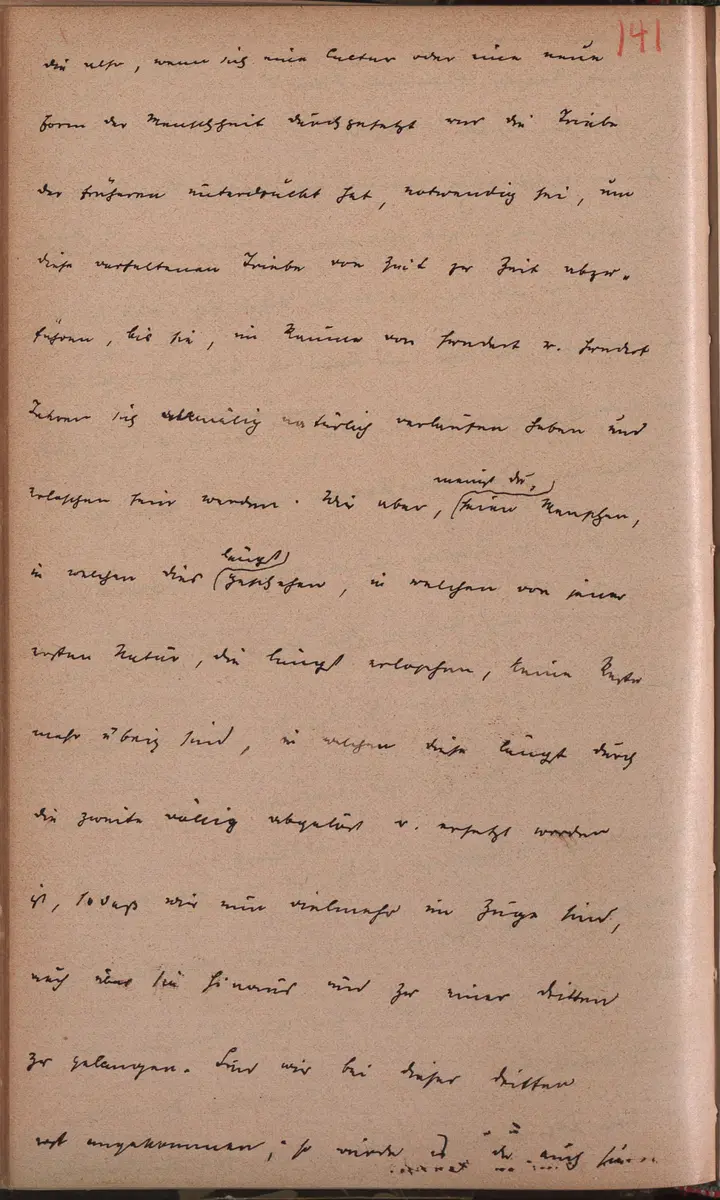 141
die also, wenn sich eine Cultur oder eine neue
Form der Menschheit durchgesetzt und die Triebe
der früheren unterdrückt hat, notwendig sei, um
diese verhaltenen Triebe von Zeit zu Zeit abzu-
führen, bis sie, im Raume von hundert u. hundert
Jahren sich allmälig natürlich verlaufen haben und
erloschen sein werden. Wir aber, (meinst du,) feine Menschen,
in welchen dies (längst) geschehen, in welchen von jener
ersten Natur, die längst erloschen, keine Reste
mehr übrig sind, in welchen diese längst durch
die zweite völlig abgelöst u. ersetzt worden
ist, sodaß wir nun vielmehr im Zuge sind,
auch über sie hinaus und zu einer dritten
zu gelangen. Sind wir bei dieser dritten
erst angekommen, so würde auch